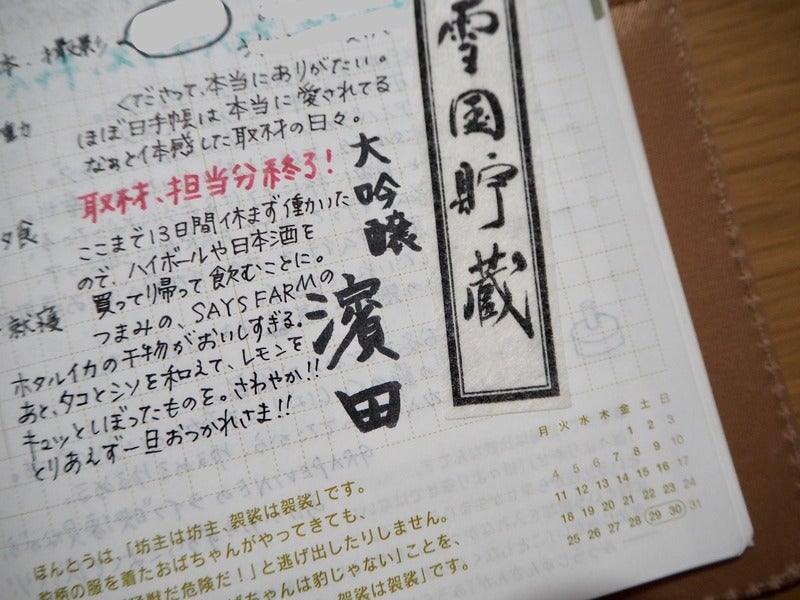 くださって、本当にありがたい。
ほぼ日手帳は本当に愛されてる
なぁと体感した取材の日々。
取材、担当分終了!
夕食
ここまで13日間休まず働いた
ので、ハイボールや日本酒を
買って帰って飲むことに。
つまみの、SAYS FARMの
就寝
ホタルイカの干物がおいしすぎる。
あと、タコとシソを和えて、レモンを
キュッとしぼったものを。さわやか!!
とりあえず一旦おつかれさま!!
大吟醸
濱田
雪国貯蔵
月 火 水 木 金 土 日
1 2 3
4 5 6 7 8 9 10
11 12 13 14 15 16 17
18 19 20 21 22 23 24
25 26 27 28 29 30 31
ほんとうは、「坊主は坊主、袈裟は袈裟」です。
豹柄の服を着たおばちゃんがやってきても、
「猛獣だ危険だ!」と逃げ出したりしません。
ばちゃんは豹じゃない」ことを、
袈裟は袈裟」です。